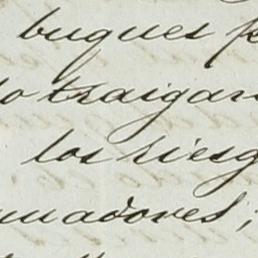 buques
lo traigan
los riesg
madores;